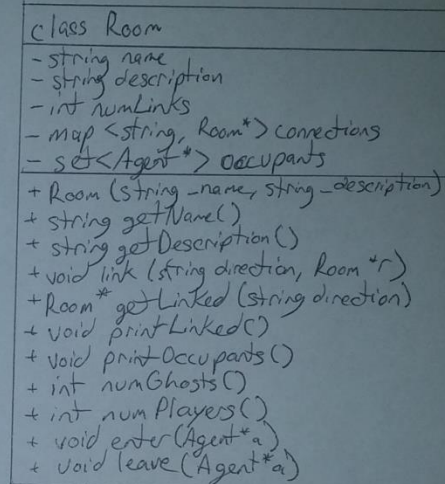 class Room
- string name
- string description
- int numLinks
- map <string, Room*> connections
- set<Agent*> occupants
+ Room (string _name, string _description)
+ string getName()
+ string getDescription()
+ void link (string direction, Room *r)
+ Room* getLinked (string direction)
+ void printLinked()
+ void printOccupants()
+ int numGhosts()
+ int numPlayers()
+ void enter(Agent*a)
+ void leave(Agent*a)